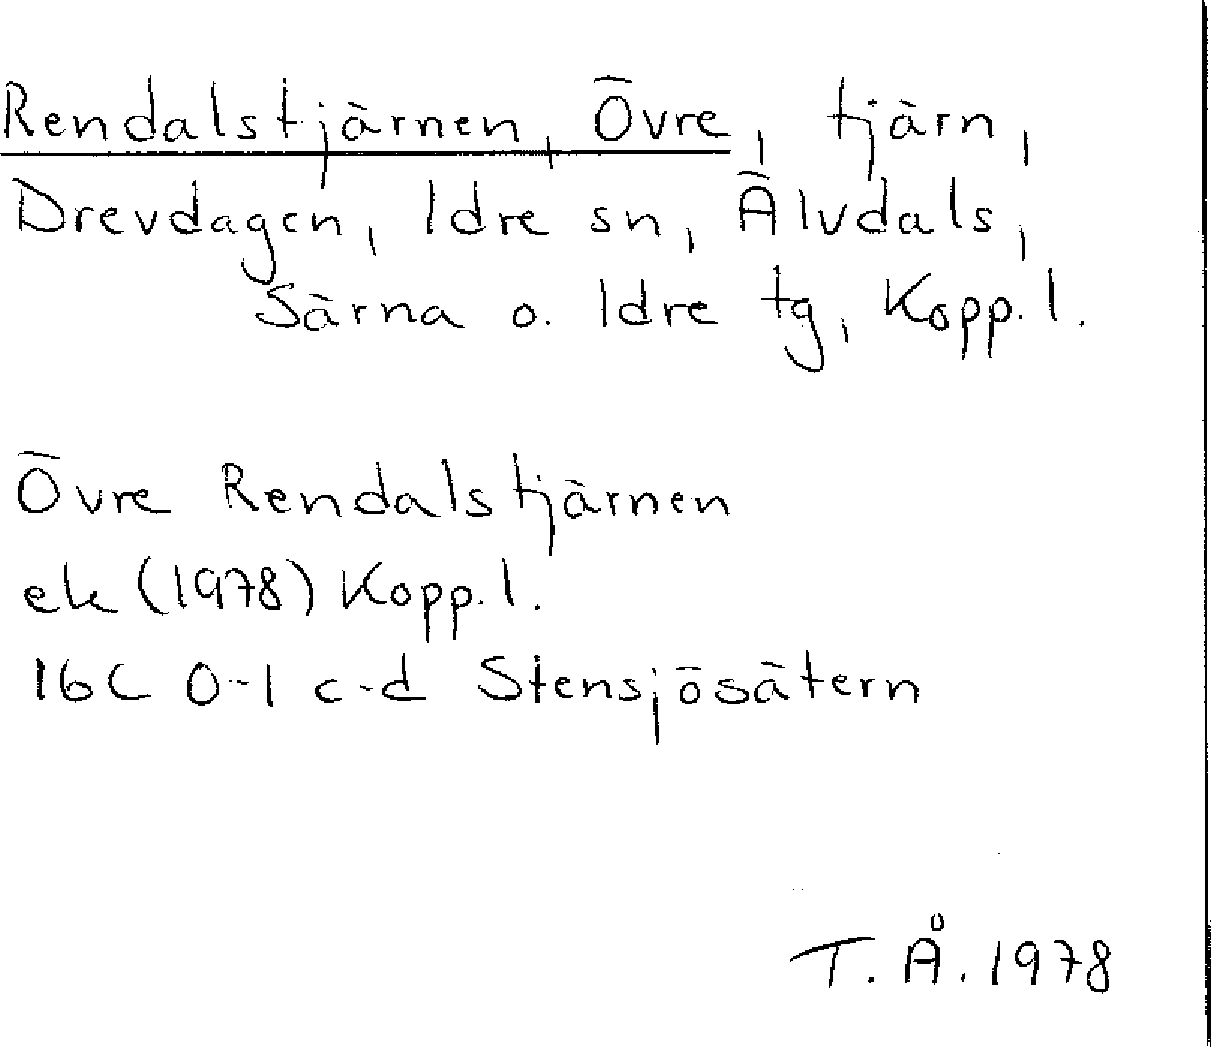 Rendalstjärnen, Övre, tjärn,
Drevdagen, Idre sn, Älvdals,
Särna o. Idre tg, Kopp. l.
Övre Rendalstjärnen
ek (1978) Kopp. l.
16C 0-1 c-d Stensjösätern
T. Å. 1978